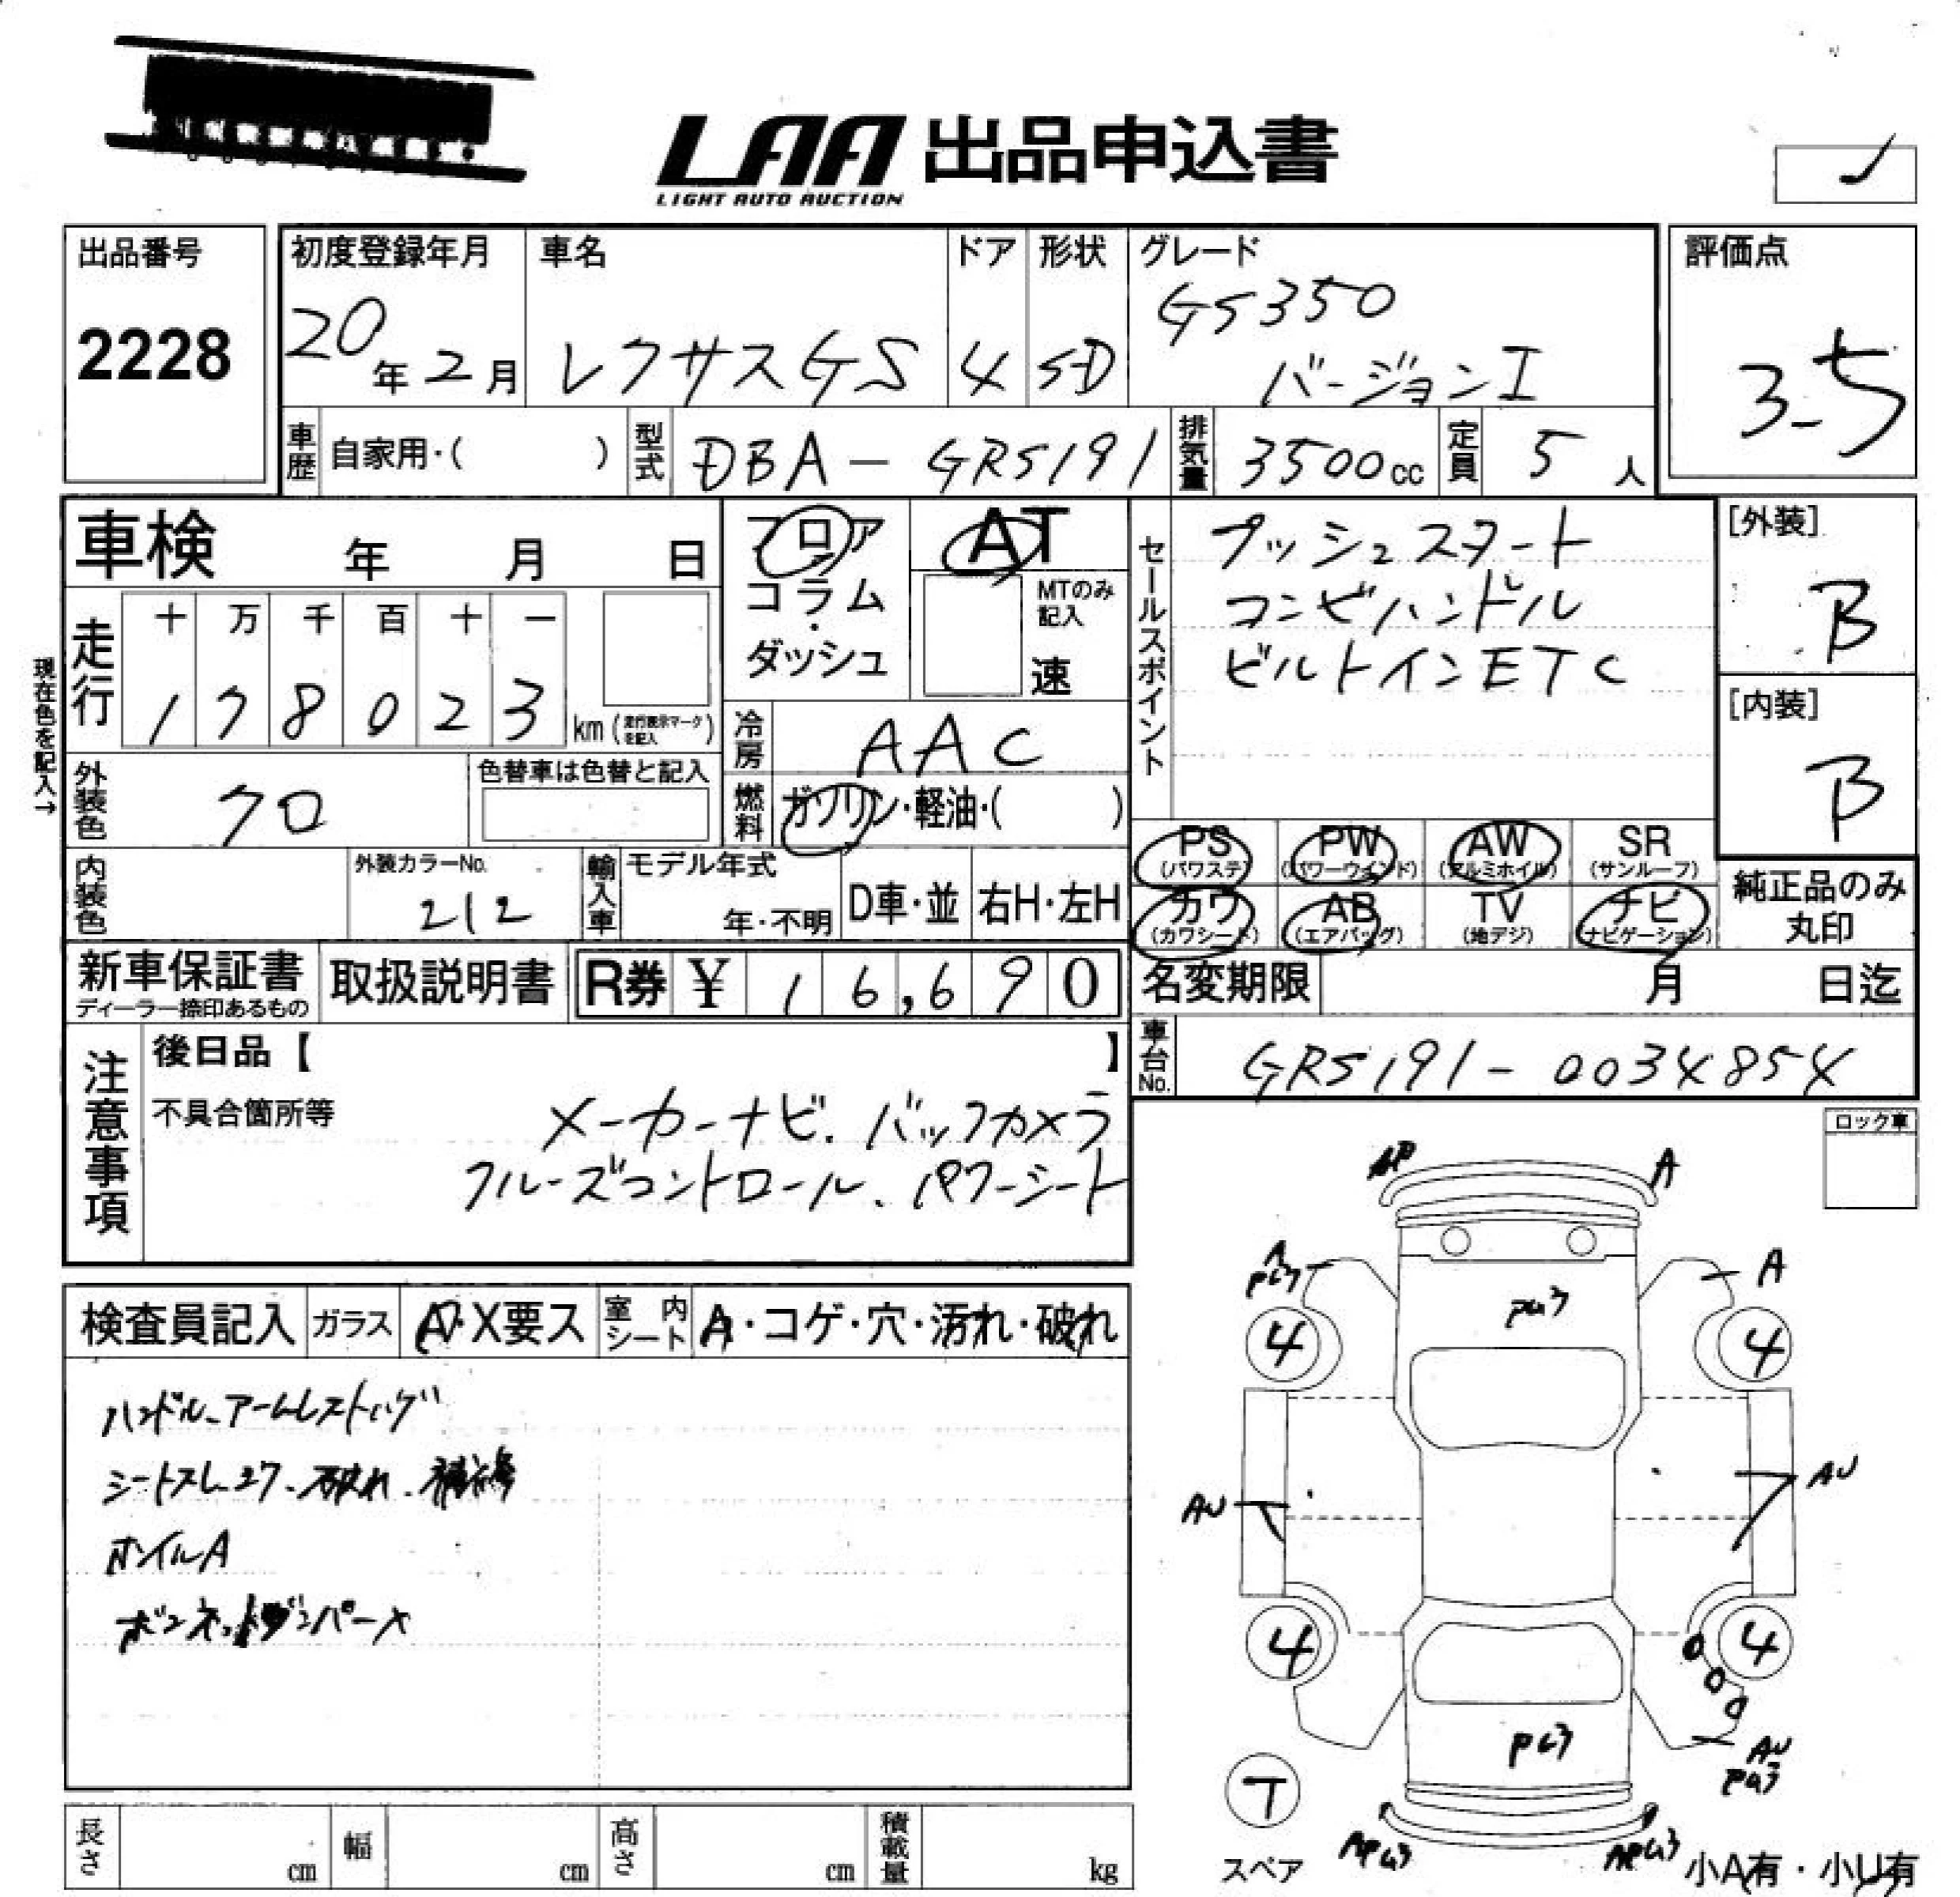 LAA 出品申込書
LIGHT AUTO AUCTION
出品番号
2228
初度登録年月
20年2月
車名
レクサスGS
ドア
4
形状
SD
グレード
GS350
バージョンI
評価点
3.5
車歴 自家用・( )
型式 DBA-GRS191
排気量 3500cc
定員 5人
車検 年 月 日
フロア
コラム
・
ダッシュ
AT
MTのみ
記入
速
セールスポイント
プッシュスタート
コンビハンドル
ビルトインETC
[外装]
B
[内装]
B
現在色を記入→
走行
十 万 千 百 十 一
1 7 8 0 2 3
km(走行表示マークを記入)
冷房 AAC
外装色 クロ
色替車は色替と記入
燃料 ガソリン・軽油・( )
PS (パワステ)
PW (パワーウインド)
AW (アルミホイル)
SR (サンルーフ)
カワ (カワシート)
AB (エアバッグ)
TV (地デジ)
ナビ (ナビゲーション)
純正品のみ
丸印
内装色
外装カラーNo.
212
輸入車
モデル年式
年・不明
D車・並
右H・左H
新車保証書
ディーラー捺印あるもの
取扱説明書
R券 ¥ 16,690
名変期限 月 日迄
車台No. GRS191-0034854
注意事項
後日品【 】
不具合箇所等
メーカーナビ. バックカメラ
クルーズコントロール、パワーシート
ロック車
検査員記入
ガラス A・X要ス
室内シート A・コゲ・穴・汚れ・破れ
ハンドル、アームレストハゲ
シートスレ、コゲ、破れ、補修
ホイルA
ボンネットダンパーX
AP A
A
PG3
A
PG3
4 4
AU AU
4 4
PG3
AU
PG3
T
スペア
APG3 APG3
小A有・小U有
長さ cm
幅 cm
高さ cm
積載量 kg